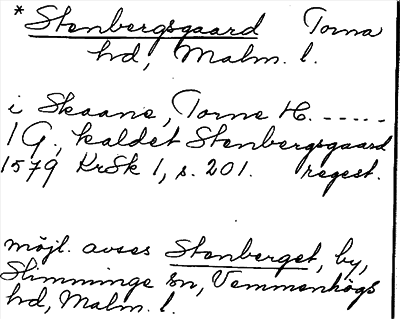 * Stenbergsgaard Torna
hd, Malm. l.
i Skaane, Torne H. -----
1 G., kaldet Stenbergsgaard
1579 KrSk 1, s. 201. regest.
möjl. avses Stenberget, by,
Slimminge sn, Vemmenhögs
hd, Malm. l.